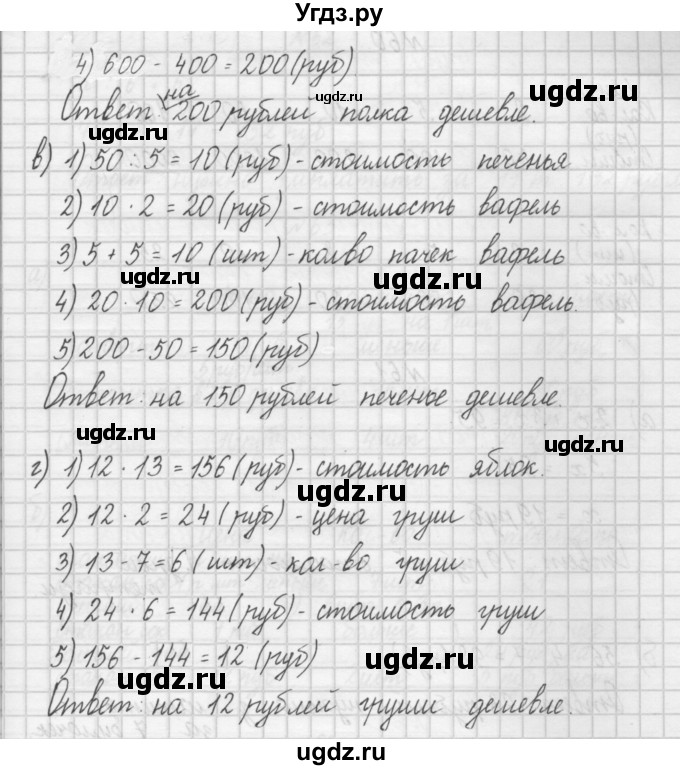 Угдз.ру
4) 600 - 400 = 200 (руб)
Ответ: на 200 рублей полка дешевле.
в) 1) 50 : 5 = 10 (руб) - стоимость печенья
2) 10 · 2 = 20 (руб) - стоимость вафель
3) 5 + 5 = 10 (шт) - колво пачек вафель
4) 20 · 10 = 200 (руб) - стоимость вафель.
5) 200 - 50 = 150 (руб)
Ответ: на 150 рублей печенье дешевле.
г) 1) 12 · 13 = 156 (руб) - стоимость яблок.
2) 12 · 2 = 24 (руб) - цена груш
3) 13 - 7 = 6 (шт) - кол-во груш
4) 24 · 6 = 144 (руб) - стоимость груш
5) 156 - 144 = 12 (руб)
Ответ: на 12 рублей груши дешевле.
ugdz.ru
ugdz.ru
ugdz.ru
ugdz.ru
ugdz.ru
ugdz.ru
ugdz.ru
ugdz.ru
ugdz.ru
ugdz.ru
ugdz.ru
ugdz.ru